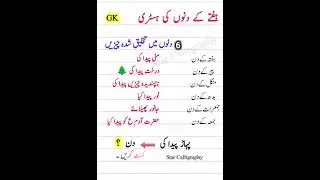 ہفتے کے دنوں کی ہسٹری
GK
6 دنوں میں تخلیق شدہ چیزیں
ہفتے کے دن مٹی پیدا کی
پیر کے دن درخت پیدا کی
منگل کے دن ناپسندیدہ چیزیں پیدا کی
بدھ کے دن نور پیدا کیا
جمعرات کے دن جانور پھیلائے
جمعہ کے دن حضرت آدم ع کو پیدا کیا
پہاڑ پیدا کی دن ؟
کمنٹ کریں۔ Star Calligraphy